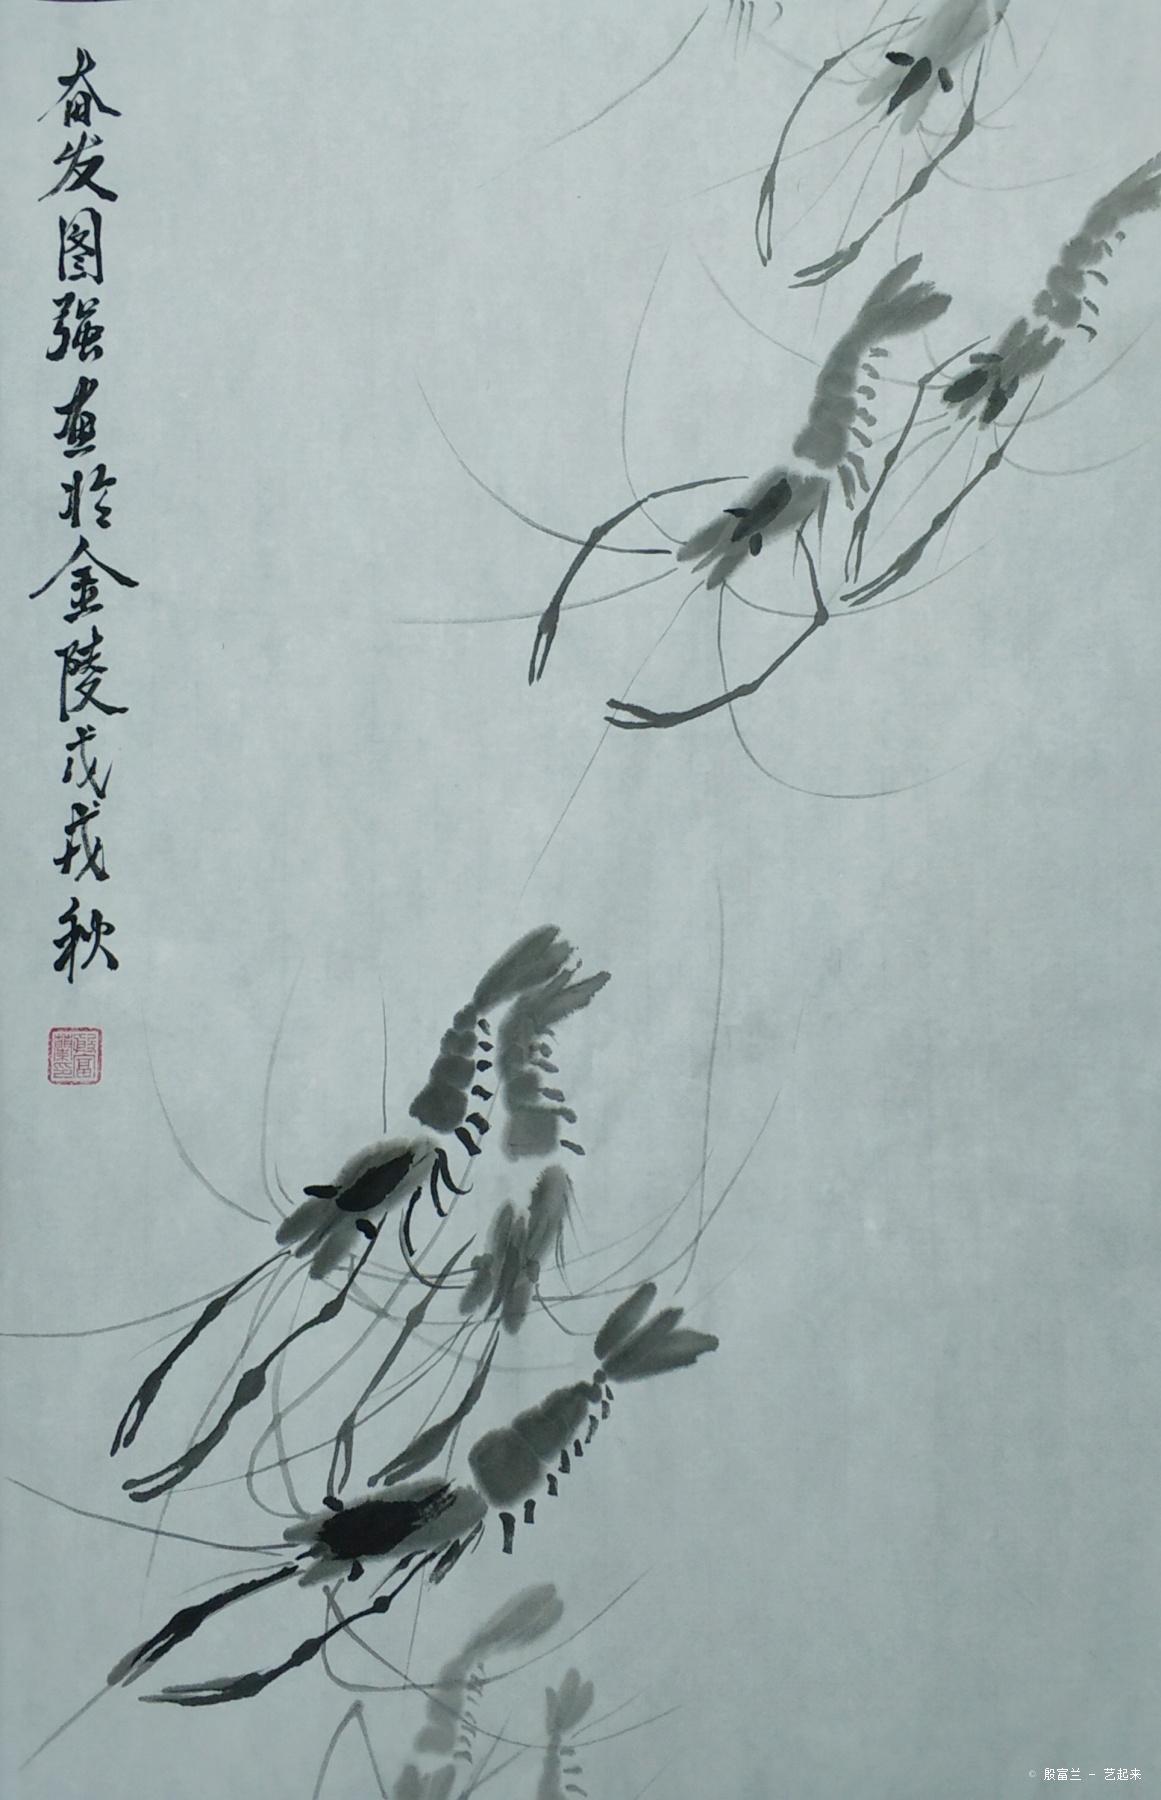 奋发图强画于金陵戊戌秋
殷富兰印
© 殷富兰 - 艺起来